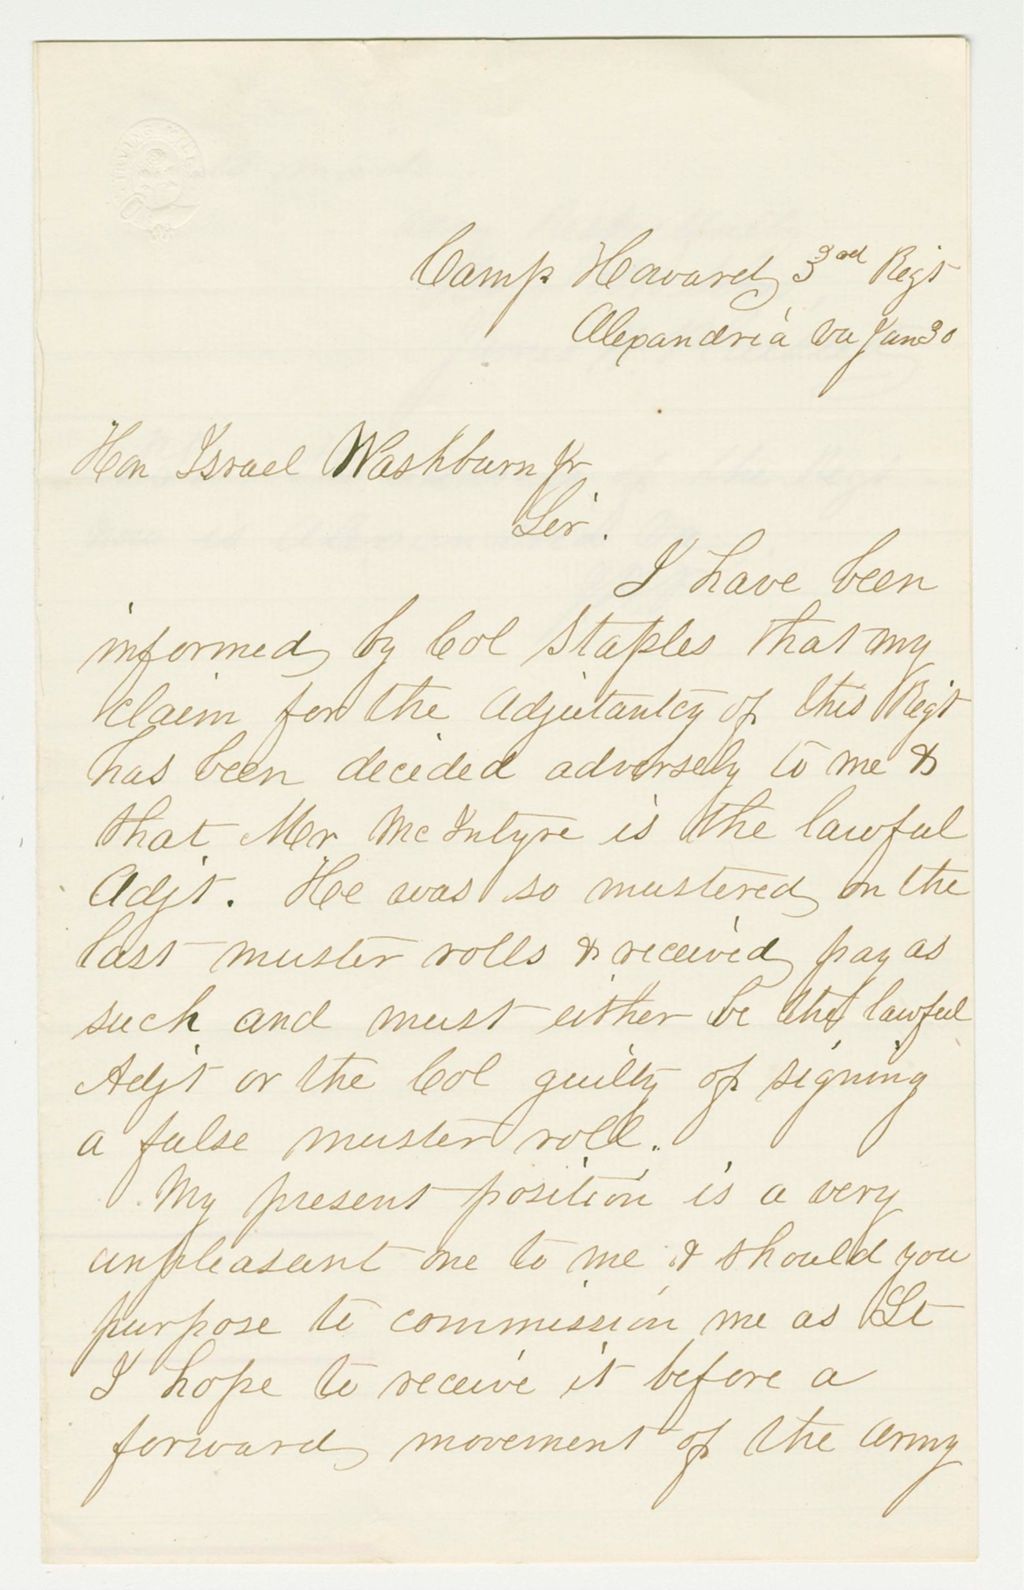 Camp Howard 3rd Regt
Alexandria Va Jan 30
Hon Israel Washburn Jr
Sir.
I have been
informed by Col Staples that my
claim for the Adjutantcy of this Regt
has been decided adversely to me &
that Mr McIntyre is the lawful
Adjt. He was so mustered on the
last muster rolls & received pay as
such and must either be the lawful
Adjt or the Col guilty of signing
a false muster roll.
My present position is a very
unpleasant one to me & should you
purpose to commission me as Lt
I hope to receive it before a
forward movement of the Army